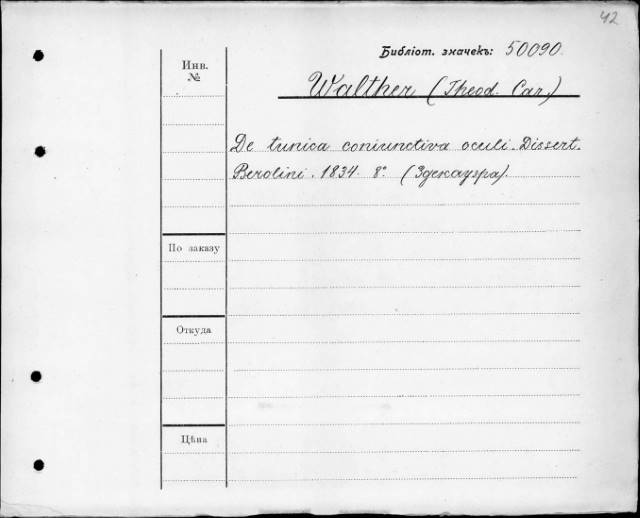 42
Библіот. значекъ: 50090.
Инв.
№
Walther (Theod. Car.)
De tunica coniunctiva oculi. Dissert.
Berolini. 1834. 8°. (Здекауэра).
По заказу
Откуда
Цѣна